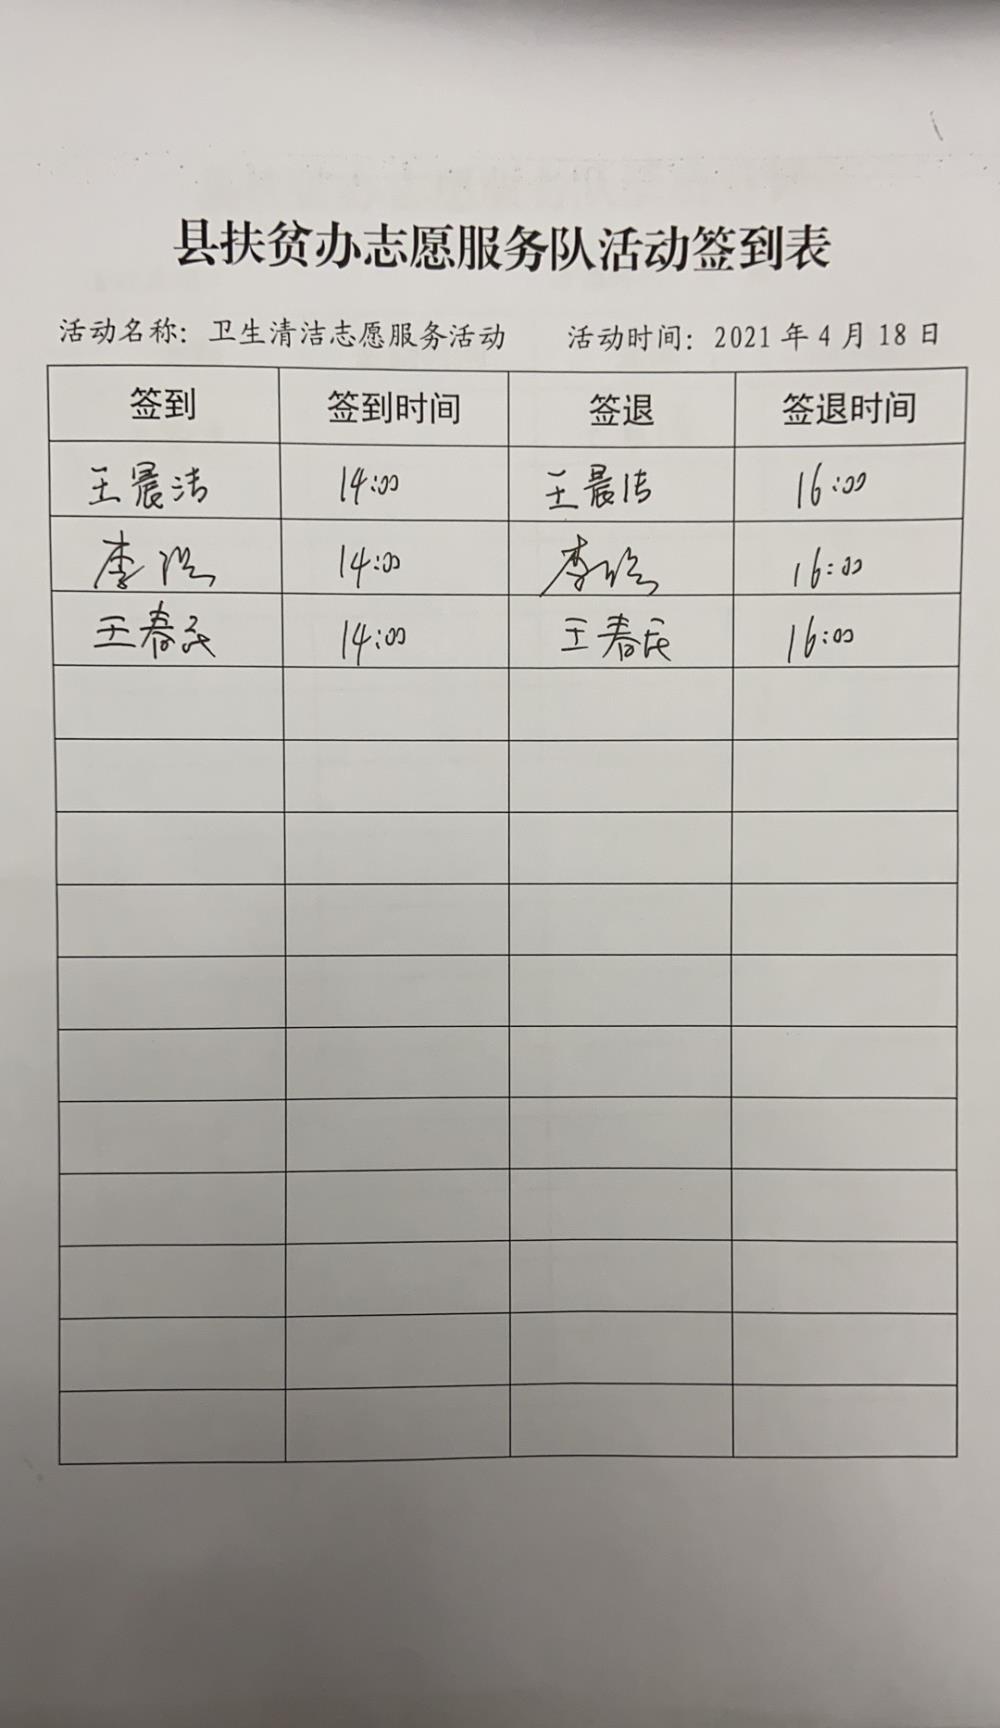 县扶贫办志愿服务队活动签到表
活动名称：卫生清洁志愿服务活动 活动时间：2021年4月18日
签到 签到时间 签退 签退时间
王晨洁 14:00 王晨洁 16:00
李 14:00 李 16:00
王春民 14:00 王春民 16:00